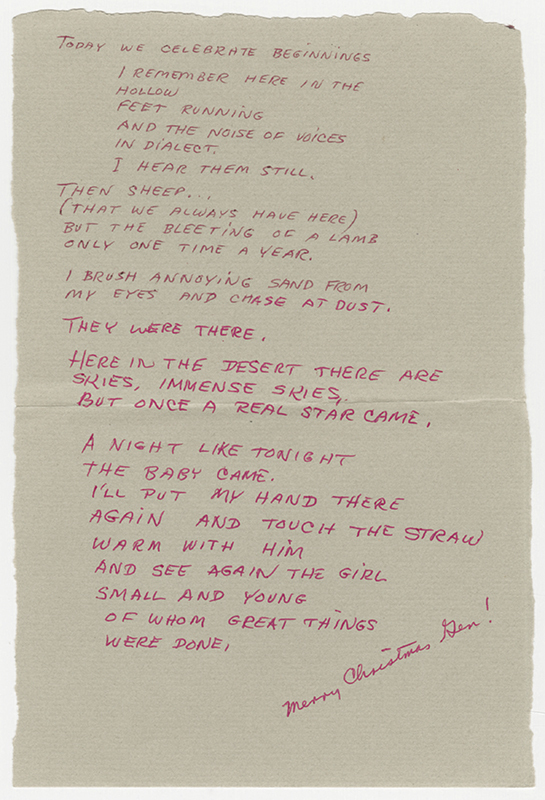 TODAY WE CELEBRATE BEGINNINGS
I REMEMBER HERE IN THE
HOLLOW
FEET RUNNING
AND THE NOISE OF VOICES
IN DIALECT.
I HEAR THEM STILL.
THEN SHEEP...
(THAT WE ALWAYS HAVE HERE)
BUT THE BLEETING OF A LAMB
ONLY ONE TIME A YEAR.
I BRUSH ANNOYING SAND FROM
MY EYES AND CHASE AT DUST.
THEY WERE THERE.
HERE IN THE DESERT THERE ARE
SKIES, IMMENSE SKIES,
BUT ONCE A REAL STAR CAME.
A NIGHT LIKE TONIGHT
THE BABY CAME.
I'LL PUT MY HAND THERE
AGAIN AND TOUCH THE STRAW
WARM WITH HIM
AND SEE AGAIN THE GIRL
SMALL AND YOUNG
OF WHOM GREAT THINGS
WERE DONE.
Merry Christmas Gen!